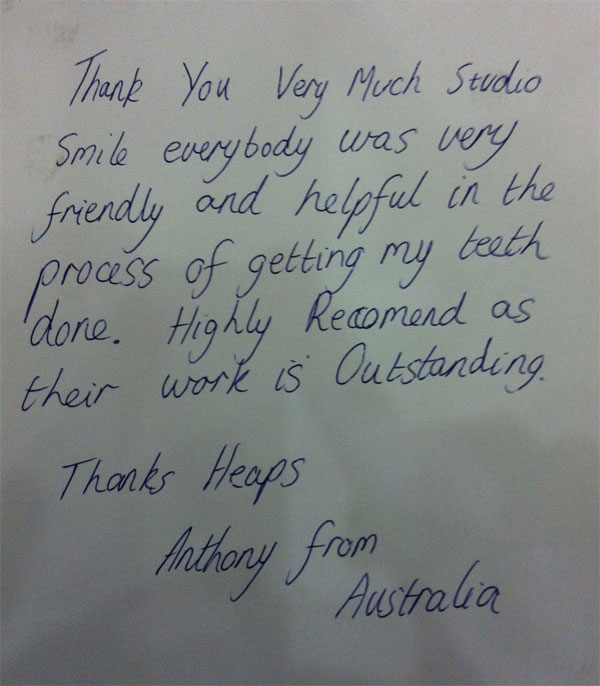 Thank You Very Much Studio
Smile everybody was very
friendly and helpful in the
process of getting my teeth
done. Highly Reccomend as
their work is Outstanding.
Thanks Heaps
Anthony from
Australia